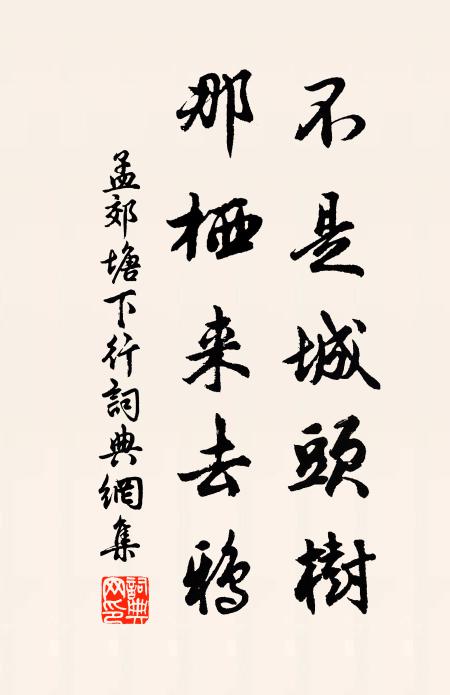 不是城頭樹
那栖来去鴉
孟郊塘下行詞典網集